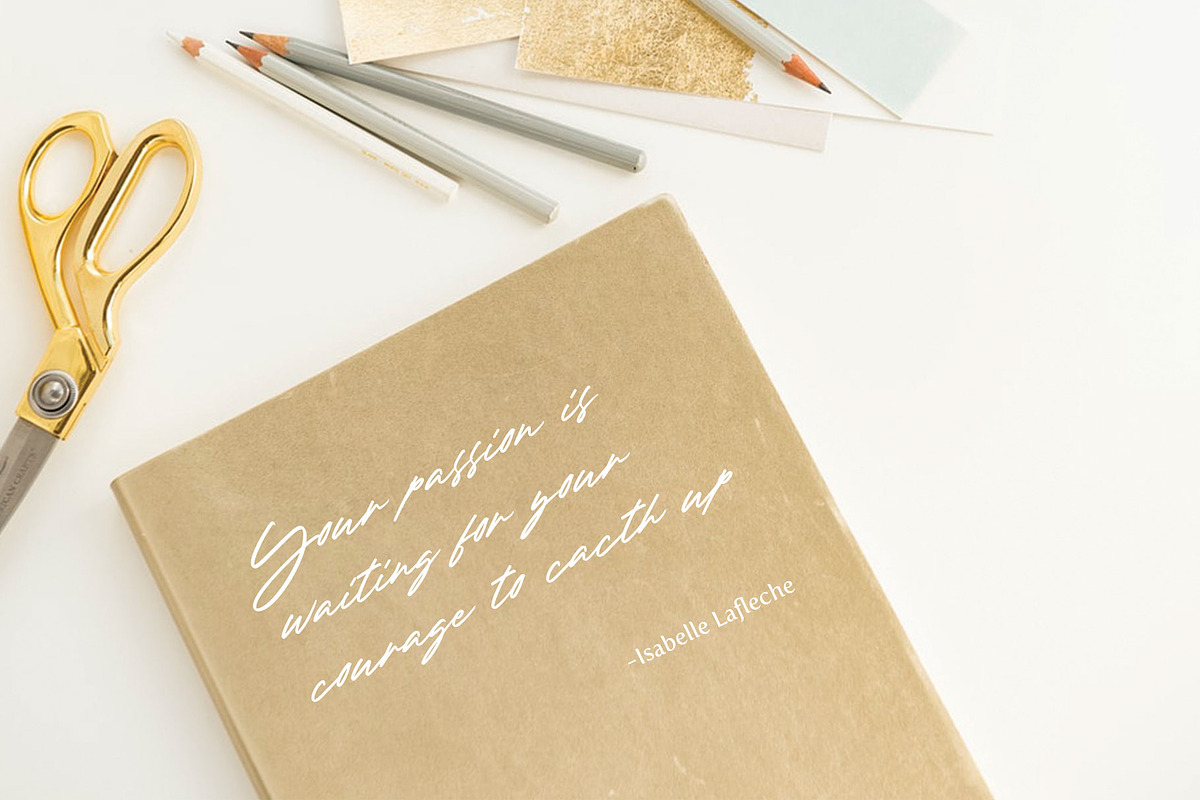 Your passion is
waiting for your
courage to cacth up
-Isabelle Lafleche